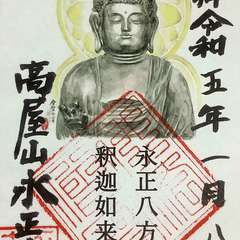 令和五年一月八
永正八方
釈迦如来
高屋山永正